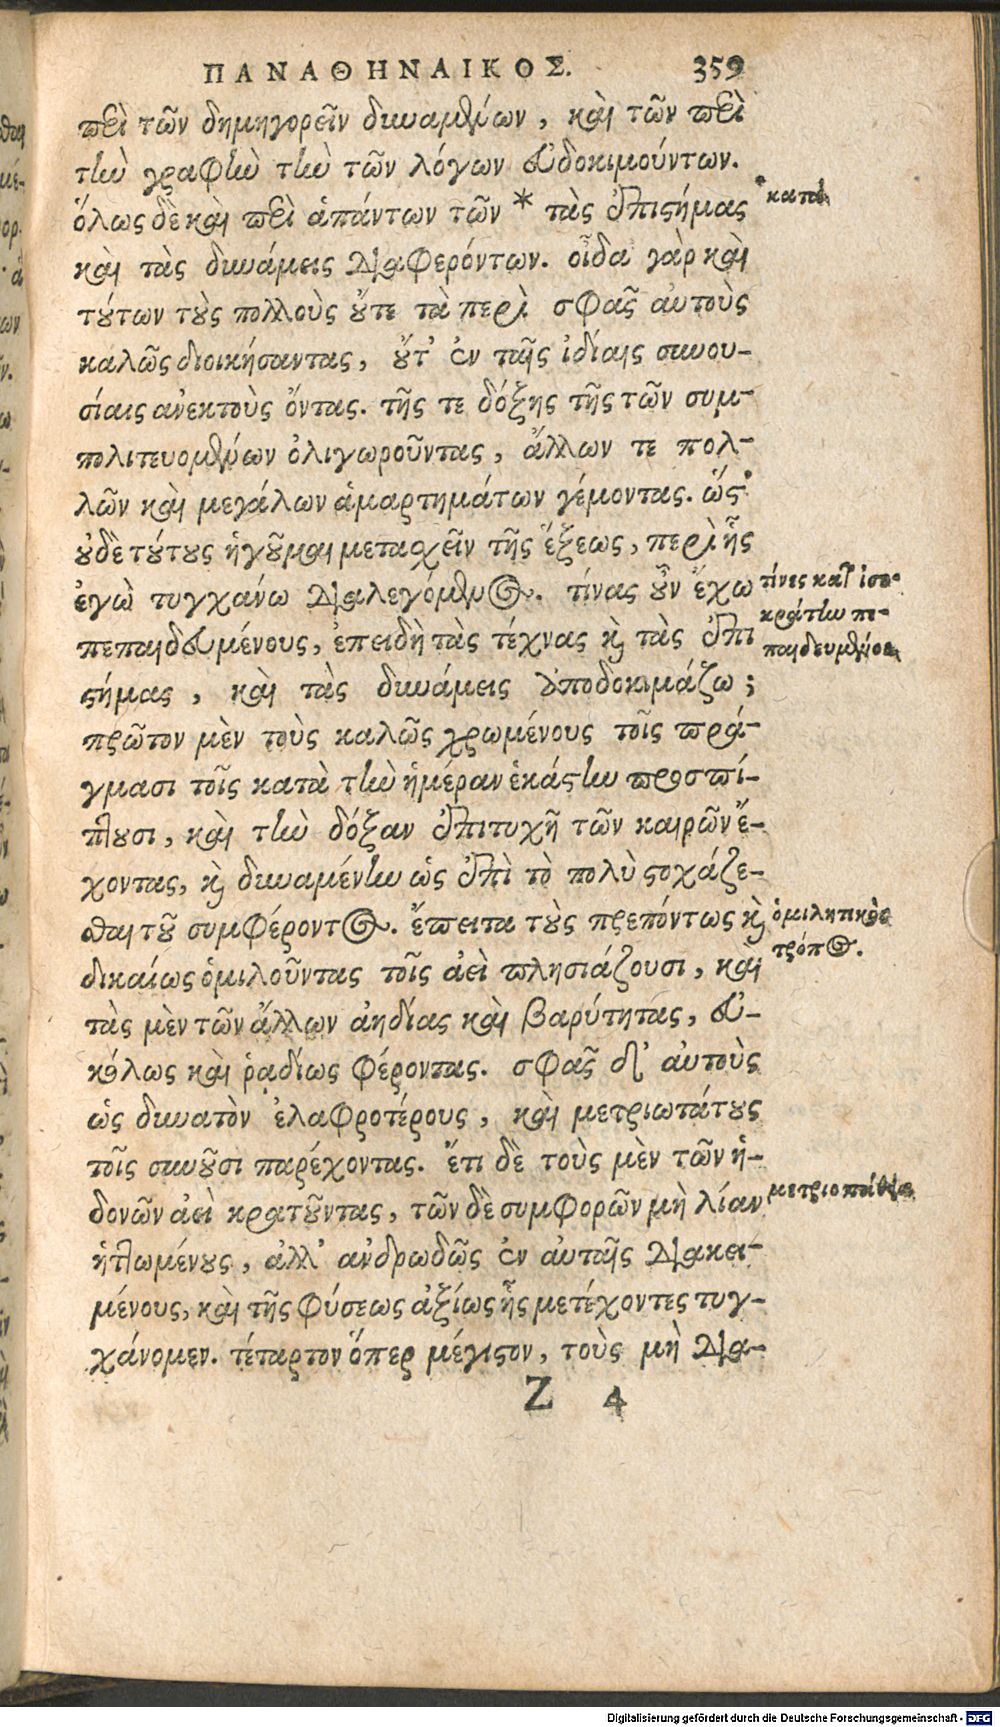 ΠΑΝΑΘΗΝΑΙΚΟΣ. 359
περὶ τῶν δημηγορεῖν δυναμένων, καὶ τῶν περὶ
τὴν γραφὴν τὴν τῶν λόγων εὐδοκιμούντων.
ὅλως δὲ καὶ περὶ ἁπάντων τῶν * τὰς ἐπιστήμας
καὶ τὰς δυνάμεις διαφερόντων. οἶδα γὰρ καὶ
τούτων τοὺς πολλοὺς οὔτε τὰ περὶ σφᾶς αὐτοὺς
καλῶς διοικήσαντας, οὔτ' ἐν ταῖς ἰδίαις συνου-
σίαις ἀνεκτοὺς ὄντας. τῆς τε δόξης τῆς τῶν συμ-
πολιτευομένων ὀλιγωροῦντας, ἄλλων τε πολ-
λῶν καὶ μεγάλων ἁμαρτημάτων γέμοντας. ὥς
οὐδὲ τούτους ἡγοῦμαι μετασχεῖν τῆς ἕξεως, περὶ ἧς
ἐγὼ τυγχάνω διαλεγόμενος. τίνας οὖν ἔχω
πεπαιδευμένους, ἐπειδὴ τὰς τέχνας καὶ τὰς ἐπι
στήμας, καὶ τὰς δυνάμεις ἀποδοκιμάζω;
πρῶτον μὲν τοὺς καλῶς χρωμένους τοῖς πρά-
γμασι τοῖς κατὰ τὴν ἡμέραν ἑκάστην προσπί-
πτουσι, καὶ τὴν δόξαν ἐπιτυχῆ τῶν καιρῶν ἔ-
χοντας, καὶ δυναμένην ὡς ἐπὶ τὸ πολὺ στοχάζε-
σθαι τοῦ συμφέροντος. ἔπειτα τοὺς πρεπόντως καὶ
δικαίως ὁμιλοῦντας τοῖς ἀεὶ πλησιάζουσι, καὶ
τὰς μὲν τῶν ἄλλων ἀηδίας καὶ βαρύτητας, εὐ-
κόλως καὶ ῥᾳδίως φέροντας. σφᾶς δ' αὐτοὺς
ὡς δυνατὸν ἐλαφροτέρους, καὶ μετριωτάτους
τοῖς συνοῦσι παρέχοντας. ἔτι δὲ τοὺς μὲν τῶν ἡ-
δονῶν ἀεὶ κρατοῦντας, τῶν δὲ συμφορῶν μὴ λίαν
ἡττωμένους, ἀλλ' ἀνδρωδῶς ἐν αὐταῖς διακει-
μένους, καὶ τῆς φύσεως ἀξίως ἧς μετέχοντες τυγ-
χάνομεν. τέταρτον ὅπερ μέγιστον, τοὺς μὴ δια-
Z 4
* κατὰ
τίνες κατ' ἰσο-
κράτην πε-
παιδευμένοι
ὁμιλητικὸς
τρόπος.
μετριοπάθεια
Digitalisierung gefördert durch die Deutsche Forschungsgemeinschaft - DFG